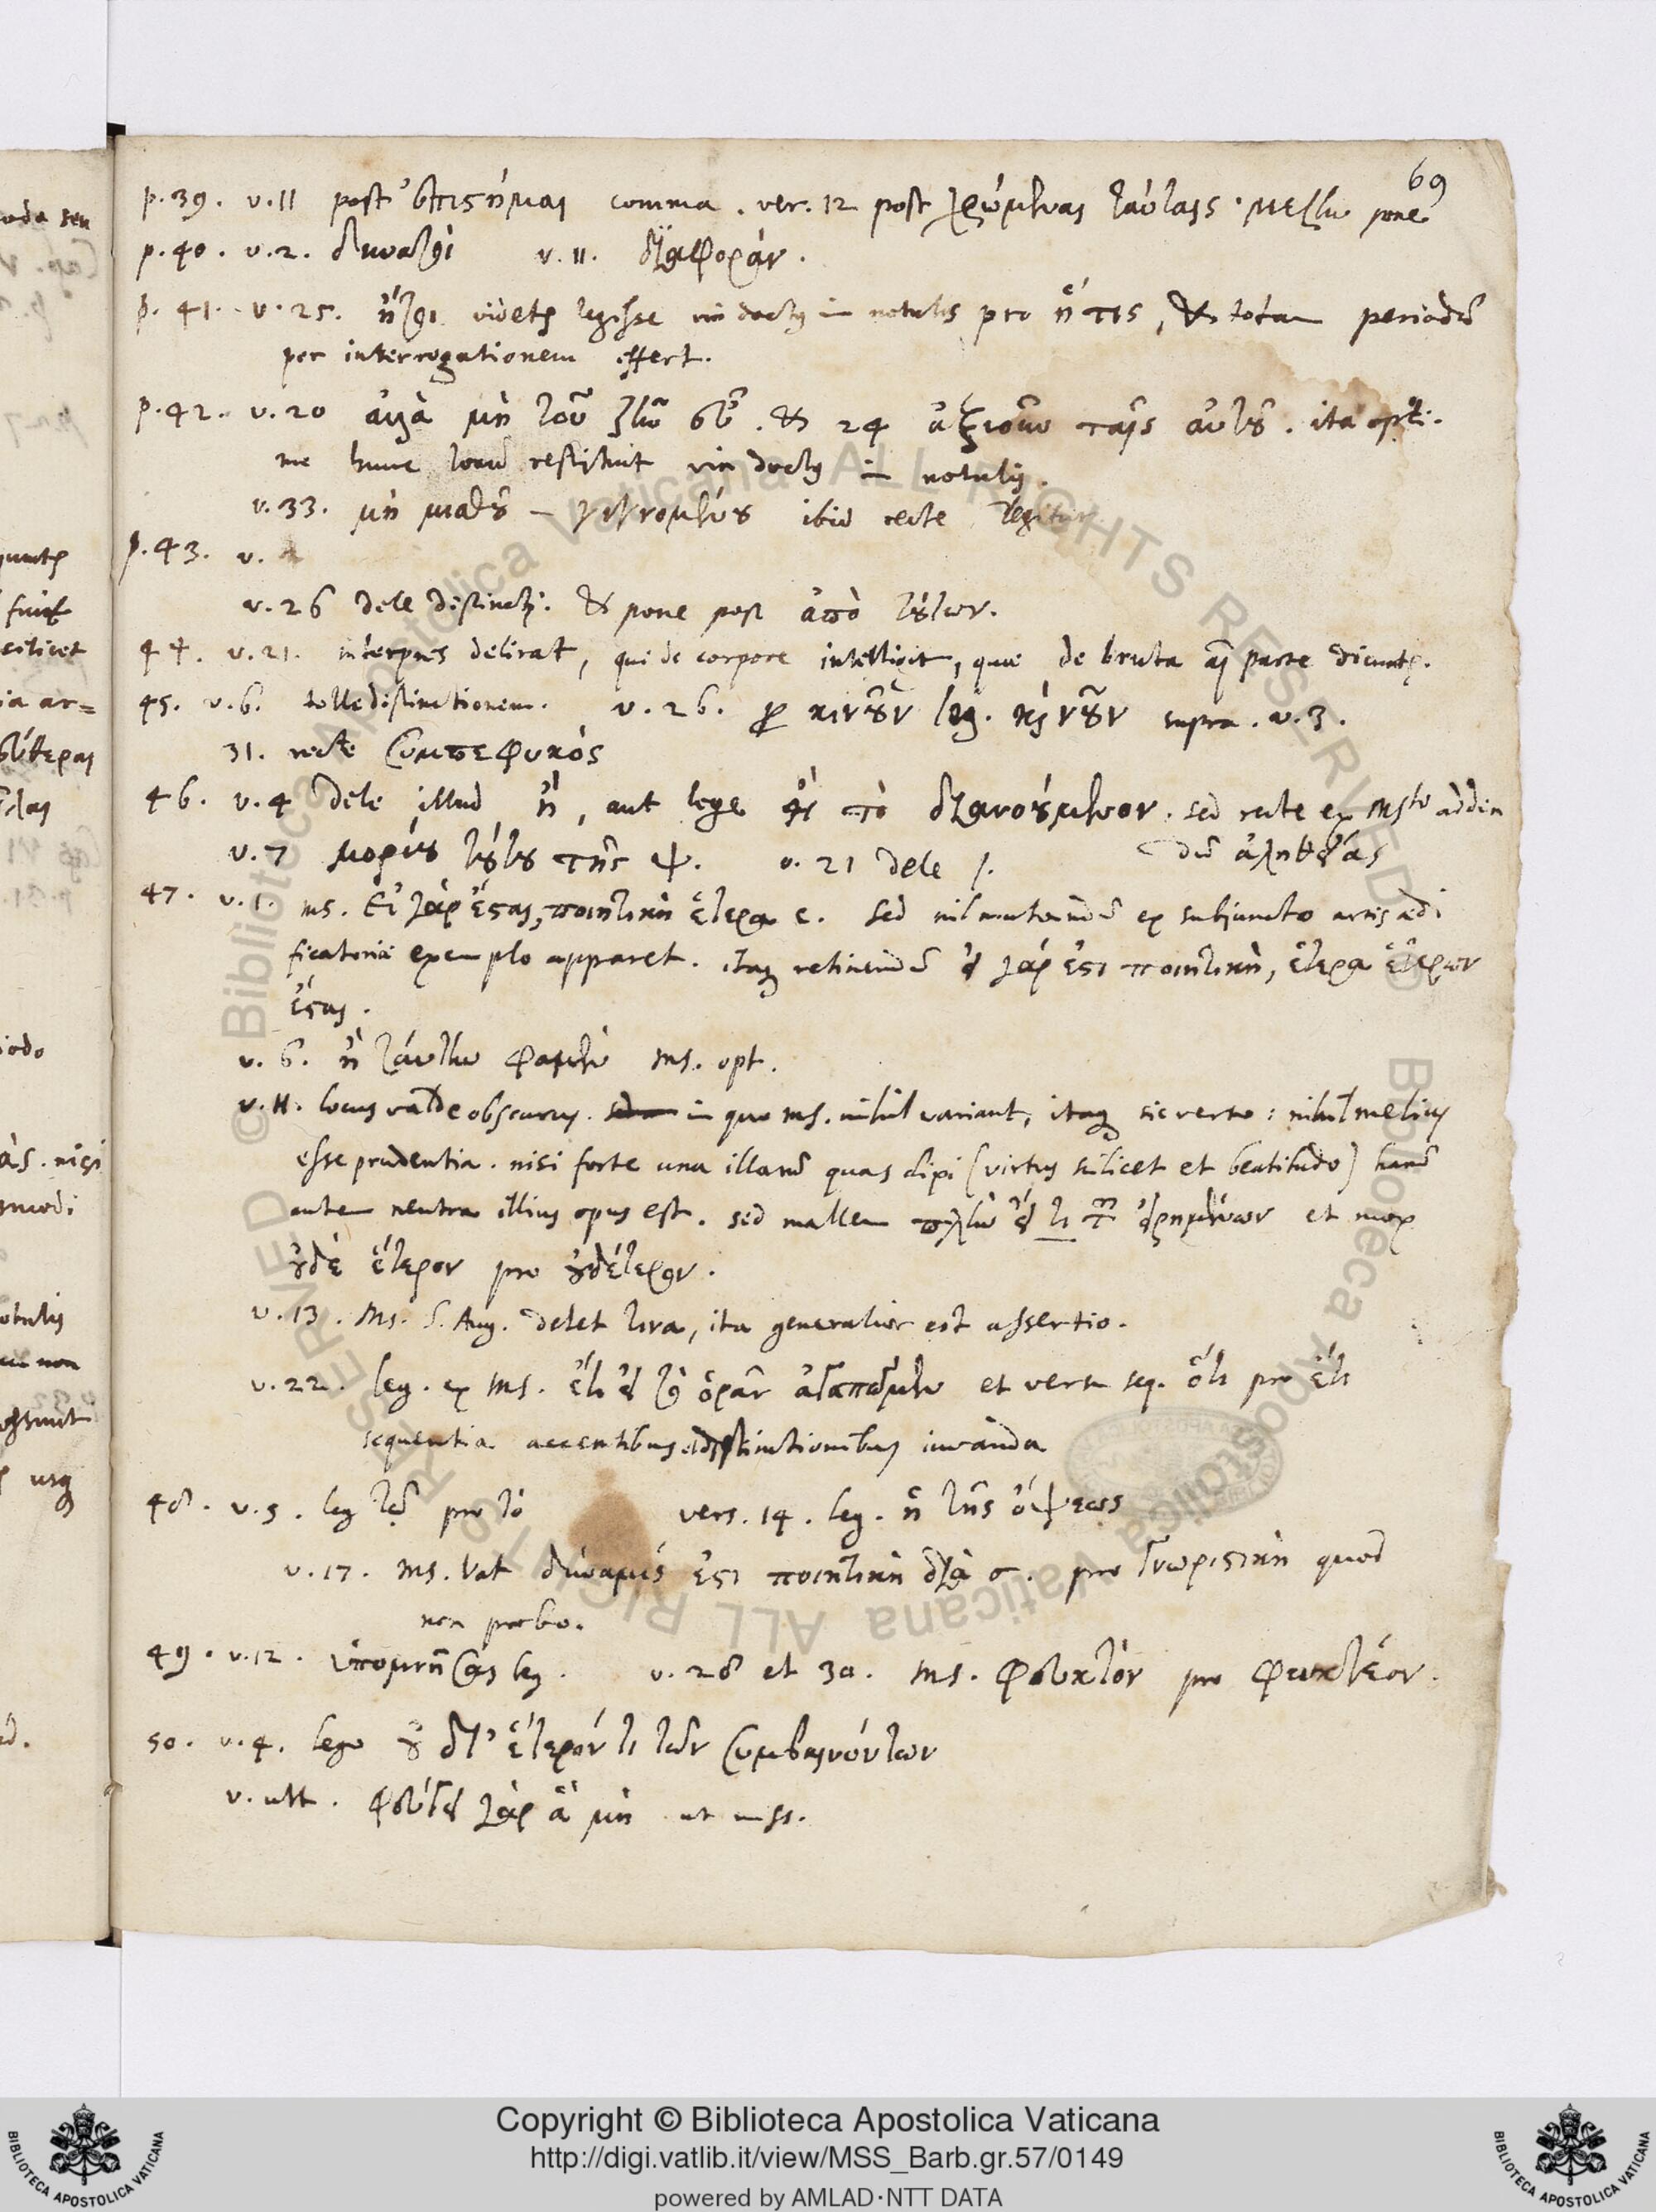 69
p. 39. v. 11 post ἐπιστήμαι comma. ver. 12 post χρώμεναι ταύταις · μέσην pone
p. 40. v. 2. δυνατὸν v. 11. διαφοράν.
p. 41. v. 25. ἤτοι videtꝫ legisse vir doctꝰ in notulis pro ἥ τις, & totam periodū
per interrogationem effert.
p. 42. v. 20 ἀλλὰ μὴ τοῦ ζῆν εὖ. & 24 ἀξιοῦν ταῖς αὐτοῦ. ita opti-
me hunc locū restituit vir doctꝰ in notulis.
v. 33. μὴ μιᾶς – γενομένου ibid recte legitur
p. 43. v.
v. 26 dele distinct. & pone post ἀπὸ τούτων.
44. v. 21. interpres delirat, qui de corpore intelligit, quae de bruta aī parte dicuntꝫ.
45. v. 6. tolle distinctionem. v. 26. ꝓ κινοῦν leg. καὶ νοῦν supra. v. 3.
31. recte συμπεφυκός
46. v. 4 dele illud ἢ, aut lege καὶ τὸ διανοούμενον. sed recte ex Msto adden
dū ἀληθείας
v. 7 μορίου τούτου τῆς ψ. v. 21 dele /.
47. v. 1. ms. Εἰ γὰρ ἔσται, ποιητικὴ ἑτέρα ε. sed nil mutandū ex subjuncto artis ædi
ficatoriæ exemplo apparet. itaq retinendū εἰ γάρ ἐστι ποιητικὴ, ἑτέρα ἑτέρων
ἔσται.
v. 6. ἢ ταύτην φαμὲν ms. opt.
v. 11. locus valde obscurus. in quo ms. nihil variant, itaq sic verto: nihil melius
esse prudentia. nisi forte una illarū quas dixi (virtus scilicet et beatitudo) harū
autem neutra illius opus est. sed mallem πλὴν εἴ τι τῶν εἰρημένων et mox
οὐδὲ ἕτερον pro οὐδέτερον.
v. 13. Ms. S. Aug. delet τινα, ita generalior est assertio.
v. 22. leg. ex Ms. ἔτι εἰ τὸ ὁρᾶν ἀγαπῶμεν et versu seq. ὅτι pro ἔτι
sequentia accentibus distinctionibus iuvanda
48. v. 5. leg τῷ pro τὸ vers. 14. leg. ἢ τῆς ὄψεως
v. 17. Ms. Vat δύναμίς ἐστι ποιητικὴ διὰ σ. pro γνωριστικὴ quod
non probo.
49. v. 12. ὑπομνῆσαι leg. v. 28 et 30. ms. φευκτὸν pro φευκτέον.
50. v. 4. lego οὐ δι' ἕτερόν τι τῶν συμβαινόντων
v. ult. φεύγει γὰρ ἃ μὴ ut mss.
Copyright © Biblioteca Apostolica Vaticana
http://digi.vatlib.it/view/MSS_Barb.gr.57/0149
powered by AMLAD·NTT DATA